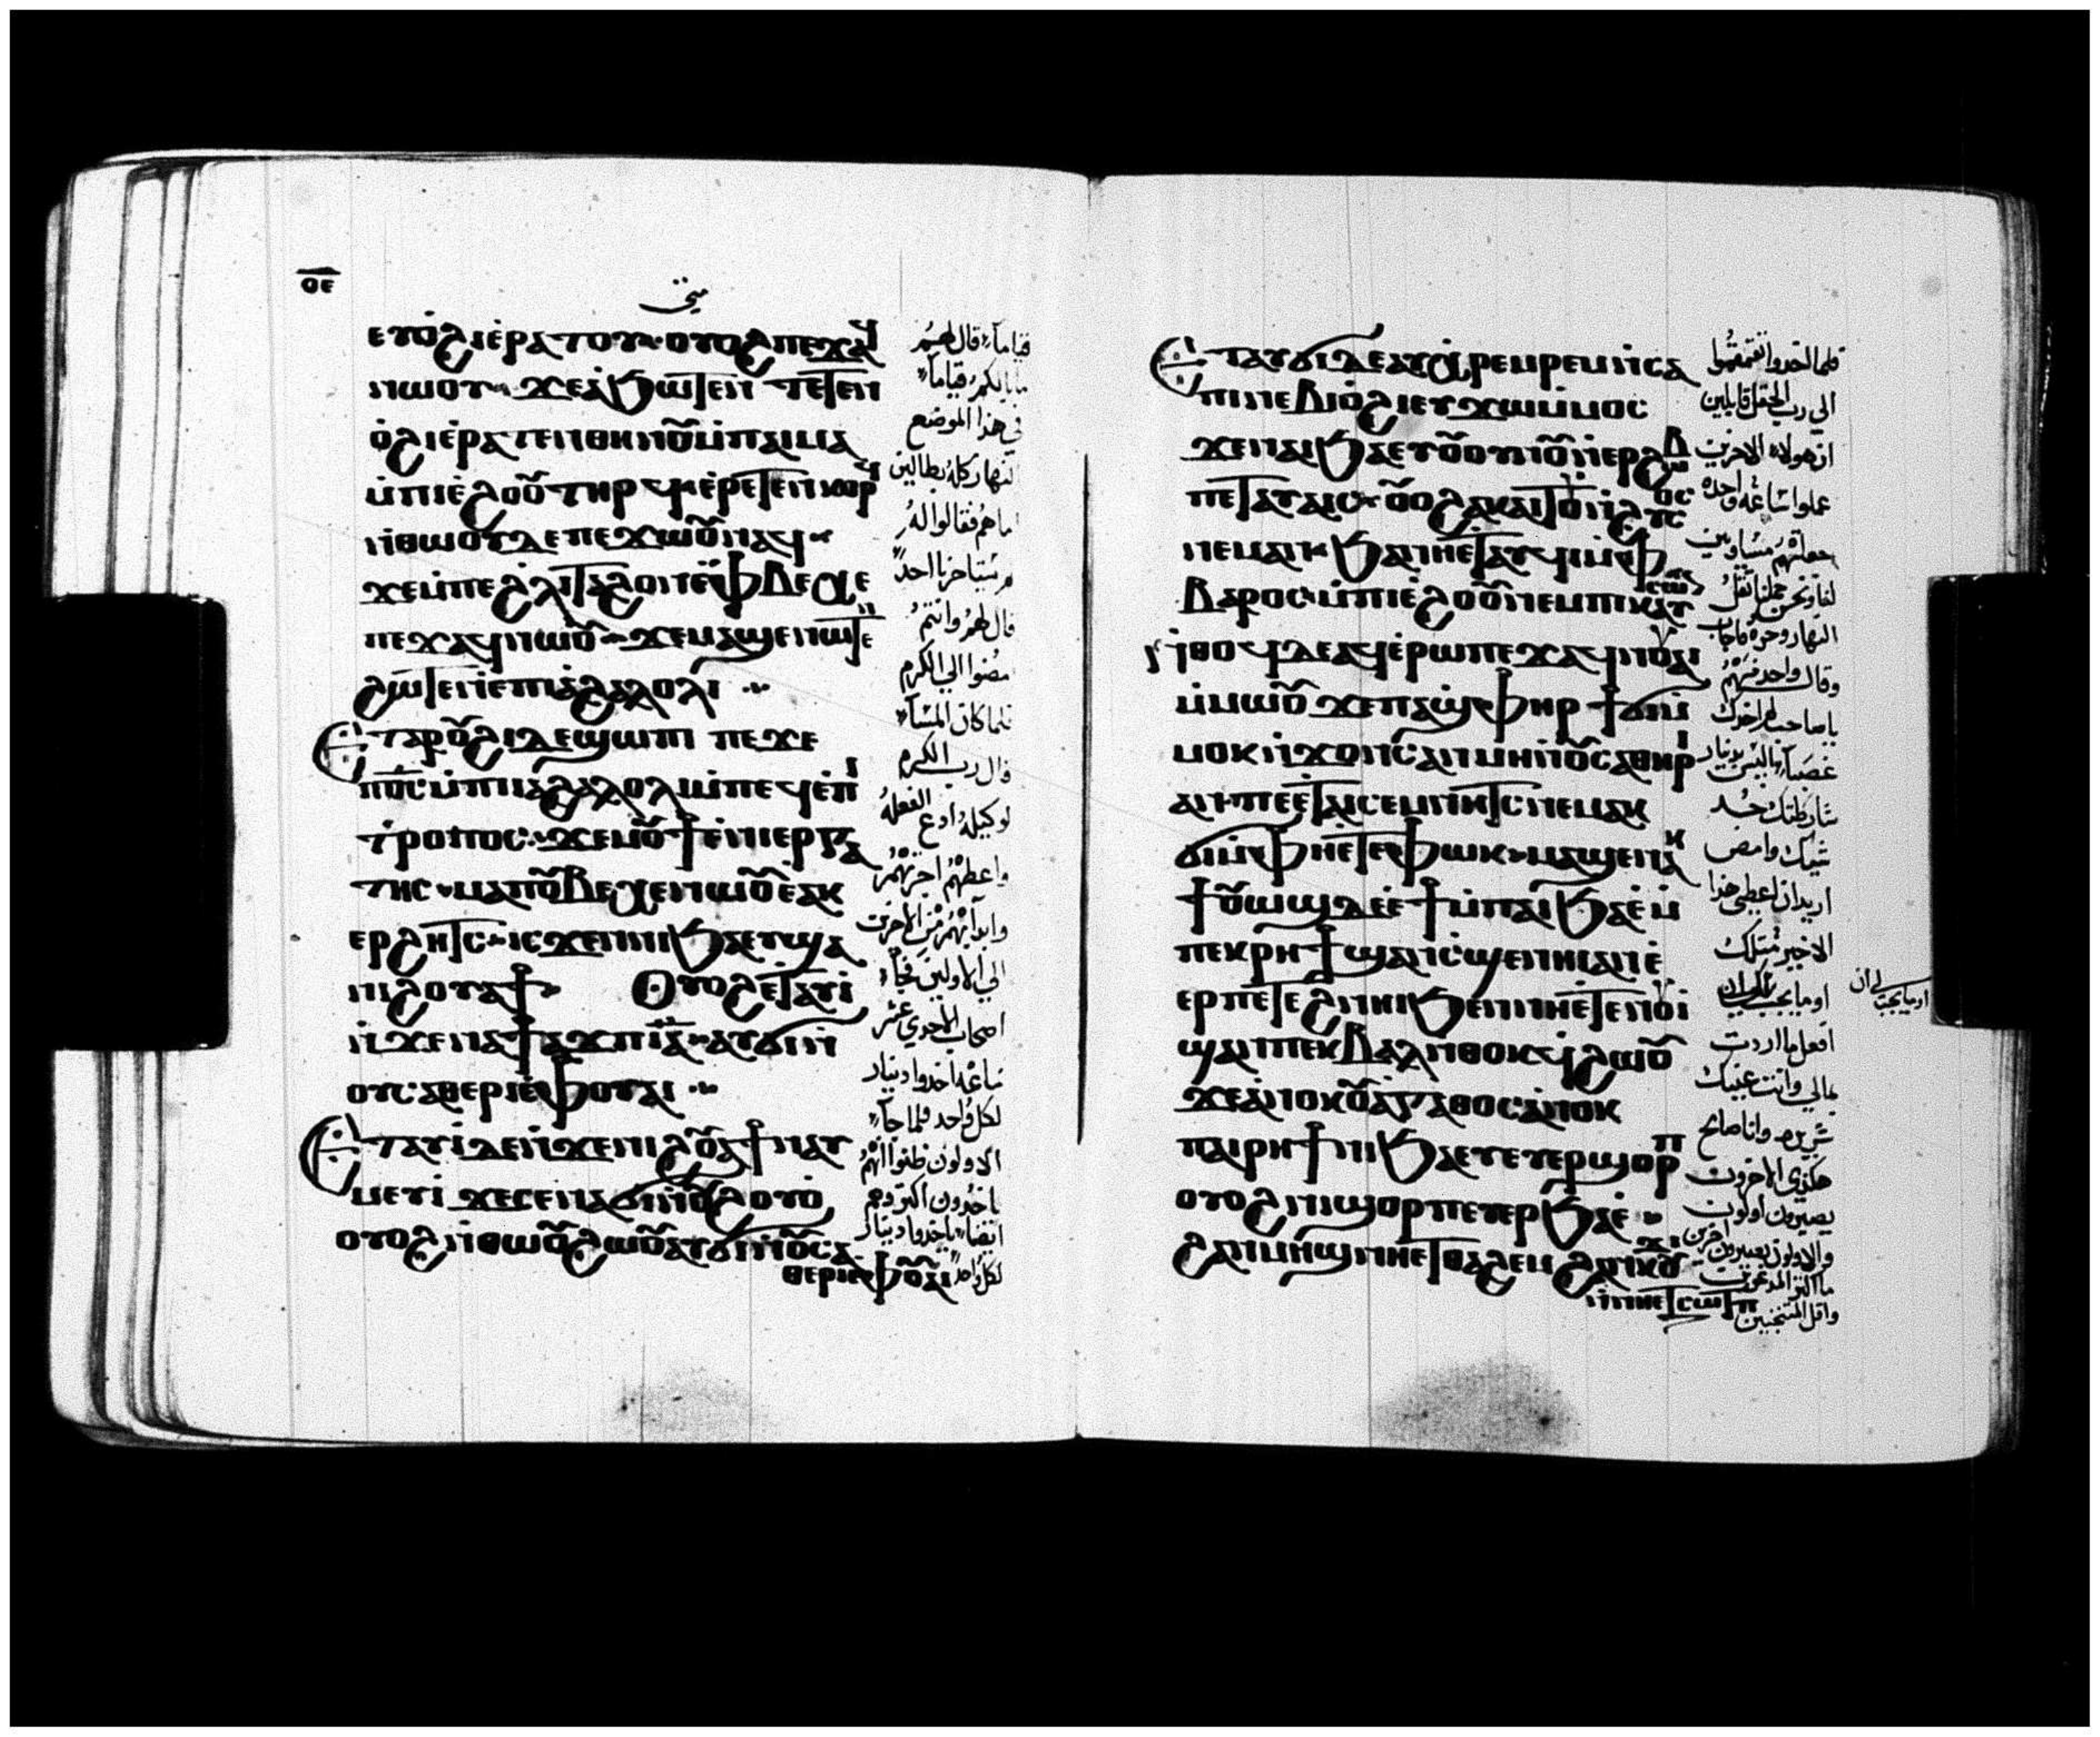 ⲟⲉ
متى
ⲉⲩⲟ̀ϩⲓ ⲉ̀ⲣⲁⲧⲟⲩ ⲟⲩⲟϩ ⲡⲉϫⲁϥ
ⲛⲱⲟⲩ ϫⲉ ⲁ̀ϧⲱⲧⲉⲛ ⲧⲉⲧⲉⲛ
ⲟ̀ϩⲓ ⲉ̀ⲣⲁⲧⲉⲛⲑⲏⲛⲟⲩ ⲙ̀ⲡⲁⲓⲙⲁ
ⲙ̀ⲡⲓⲉ̀ϩⲟⲟⲩ ⲧⲏⲣϥ ⲉ̀ⲣⲉⲧⲉⲛⲕⲟⲣϥ
ⲛ̀ⲑⲱⲟⲩ ⲇⲉ ⲡⲉϫⲱⲟⲩ ⲛⲁϥ
ϫⲉ ⲙ̀ⲡⲉ ϩⲗⲓ ⲧⲁϩⲟⲛ ⲉ̀ⲫⲃⲉⲭⲉ
ⲡⲉϫⲁϥ ⲛⲱⲟⲩ ϫⲉ ⲙⲁϣⲉ ⲛⲱⲧⲉⲛ
ϩⲱⲧⲉⲛ ⲉ̀ⲡⲓⲁ̀ϩⲁⲗⲟⲗⲓ
Ⲉⲧⲁ ⲣⲟⲩϩⲓ ⲇⲉ ϣⲱⲡⲓ ⲡⲉϫⲉ
ⲡⲟ̅ⲥ̅ ⲙ̀ⲡⲓⲓⲁϩⲁⲗⲟⲗⲓ ⲙ̀ⲡⲉϥⲉ̀ⲡⲓ
ⲧⲣⲟⲡⲟⲥ ϫⲉ ⲙⲟⲩϯ ⲉ̀ⲛⲓⲉⲣⲅⲁ
ⲧⲏⲥ ⲙⲁ ⲡⲟⲩⲃⲉⲭⲉ ⲛⲱⲟⲩ ⲉⲁⲕ
ⲉⲣϩⲏⲧⲥ ⲓⲥϫⲉⲛ ⲛⲓϧⲁⲉⲩ ϣⲁ
ⲛⲓϩⲟⲩⲁϯ Ⲟⲩⲟϩ ⲉⲧⲁⲩⲓ̀
ⲛ̀ϫⲉ ⲛⲁϯⲁϫⲡ ⲓⲁ̅ ⲁⲩϭⲓ ⲛ̀
ⲟⲩⲥⲁⲑⲉⲣⲓ ⲉ̀ⲫⲟⲩⲁⲓ
Ⲉⲧⲁⲩⲓ̀ ⲇⲉ ⲛ̀ϫⲉ ⲛⲓϩⲟⲩⲁϯ ⲛⲁⲩ
ⲙⲉⲩⲓ̀ ϫⲉ ⲥⲉⲛⲁϭⲓ ⲛ̀ⲟⲩϩⲟⲩⲟ̀
ⲟⲩⲟϩ ⲛ̀ⲑⲱⲟⲩ ϩⲱⲟⲩ ⲁⲩϭⲓ ⲛ̀ⲟⲩⲥⲁ
ⲑⲉⲣⲓ ⲉ̀ⲫⲟⲩⲁⲓ
قياماً قال لهم
ما بالكم قياماً
في هذا الموضع
النهار كله بطالين
اما هم فقالوا له
لم يستاجرنا احداً
قال لهم وانتم
امضوا الي الكرم
فلما كان المسآء
قال رب الكرم
لوكيله ادع الفعله
واعطهم اجرتهم
وابدا بهم من الاخرين
الي الاولين فجآء
اصحاب الحادي عشر
ساعه اخدوا دينار
لكل واحد فلما جآء
الاولون ظنوا انهم
ياخدون اكثر وهم
ايضاً ياخدوا دينار
لكل واحد
Ⲉⲧⲁⲩϭⲓ ⲇⲉ ⲁⲩⲭⲣⲉⲙⲣⲉⲙ ⲛ̀ⲥⲁ
ⲡⲓⲛⲉⲃⲓⲟ̀ϩⲓ ⲉⲩϫⲱ ⲙ̀ⲙⲟⲥ
ϫⲉ ⲛⲁⲓϧⲁⲉⲩ ⲟⲩⲟⲩⲛⲟⲩ ⲛ̀ⲉⲣϩⲱⲃ
ⲡⲉⲧⲁⲩⲁⲓϥ ⲟⲩⲟϩ ⲁⲕⲁⲓⲧⲟⲩ ⲛ̀ϩⲩⲥⲟⲥ
ⲛⲉⲙⲁⲛ ϧⲁ ⲛⲏⲉⲧⲁⲩϥⲓ ⲙ̀ⲫ
ⲃⲁⲣⲟⲥ ⲙ̀ⲡⲓⲉ̀ϩⲟⲟⲩ ⲛⲉⲙ ⲡⲓⲕⲁⲩⲥⲱⲛ
ⲛ̀ⲑⲟϥ ⲇⲉ ⲁϥⲉ̀ⲣⲟⲩⲱ ⲡⲉϫⲁϥ ⲛ̀ⲟⲩⲁⲓ
ⲙ̀ⲙⲱⲟⲩ ϫⲉ ⲡⲁϣⲫⲏⲣ ϯϭⲓ ⲙ̀
ⲙⲟⲕ ⲛ̀ϫⲟⲛⲥ ⲁⲛ ⲙⲏ ⲛ̀ⲟⲩⲥⲁⲑⲏⲣⲓ
ⲁⲛ ⲡⲉ ⲉ̀ⲧⲁⲓⲥⲉⲙⲛⲏⲧⲥ ⲛⲉⲙⲁⲕ
ϭⲓ ⲙ̀ⲫⲏ ⲉ̀ⲧⲉ ⲫⲱⲕ ⲙⲁϣⲉ ⲛⲁⲕ
ϯⲟⲩⲱϣ ⲇⲉ ⲉ̀ϯ ⲙ̀ⲡⲁⲓϧⲁⲉ̀ ⲙ̀
ⲡⲉⲕⲣⲏϯ ϣⲁⲛ ⲥ̀ϣⲉ ⲛⲏⲓ ⲁⲛ ⲉ̀
ⲉⲣ ⲡⲉⲧⲉϩⲛⲏⲓ ϧⲉⲛ ⲛⲏⲉ̀ⲧⲉⲛⲟⲩⲓ
ϣⲁⲛ ⲡⲉⲕⲃⲁⲗ ⲛ̀ⲑⲟⲕ ϥ̀ϩⲱⲟⲩ
ϫⲉ ⲁ̀ⲛⲟⲕ ⲟⲩⲁⲅⲁⲑⲟⲥ ⲁ̀ⲛⲟⲕ
ⲡⲁⲓⲣⲏϯ ⲛⲓϧⲁⲉⲩ ⲉⲩⲉⲣϣⲟⲣⲡ
ⲟⲩⲟϩ ⲛⲓϣⲟⲣⲡ ⲉⲩⲉⲣϧⲁⲉ̀
ϩⲁⲛⲙⲏϣ ⲛⲏⲉⲧⲑⲁϩⲉⲙ ϩⲁⲛⲕⲟⲩϫⲓ
ⲛ̀ⲛⲏⲉⲧⲥⲱⲧⲡ
فلما اخدوا تقمقموا
الي رب الحقل قايلين
ان هولاء الاخرين
عملوا ساعه واحده
جعلتهم متساويين
لنا ونحن حملنا ثقل
النهار وحره فاجاب
وقال لواحد منهم
يا صاحب لم اخدك
غصباً اليس بدينار
شارطتك خد
شيك وامض
اريد ان اعطي هذا
الاخير مثلك
او ما يجب لي ان
افعل ما اردت
بمالي وانت عينك
شريره وانا صالح
هكذي الاخرون
يصيرون اولون
والاولون يصيرون اخرين
ما اكثر المدعوين
واقل المنتخبين
او ما يجب لي ان